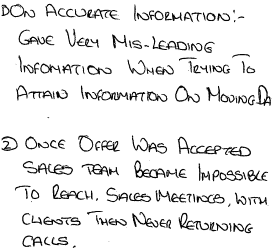 ①ON ACCURATE INFORMATION:-
GAVE VERY MIS-LEADING
INFOMATION WHEN TRYING TO
ATTAIN INFORMATION ON MOVING
② ONCE OFFER WAS ACCEPTED
SALES TEAM BECAME IMPOSSIBLE
TO REACH. SALES MEETINGS, WITH
CLIENTS THEN NEVER RETURNING
CALLS.